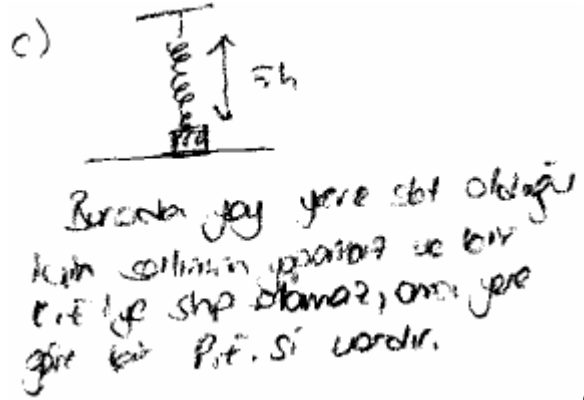 c)
h
Burada yay yere sbt olduğu
için salınım yapamaz ve bir
k.E'ye shp olamaz, ama yere
göre bir P.E. si vardır.